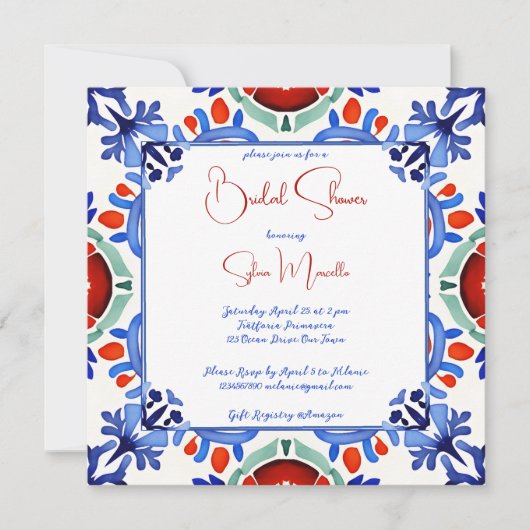 please join us for a
Bridal Shower
honoring
Sylvia Marcello
Saturday April 25 at 2 pm
Trattoria Primavera
123 Ocean Drive, Our Town
Please Rsvp by April 5 to Melanie
1234567890 melanie@gmail.com
Gift Registry @Amazon